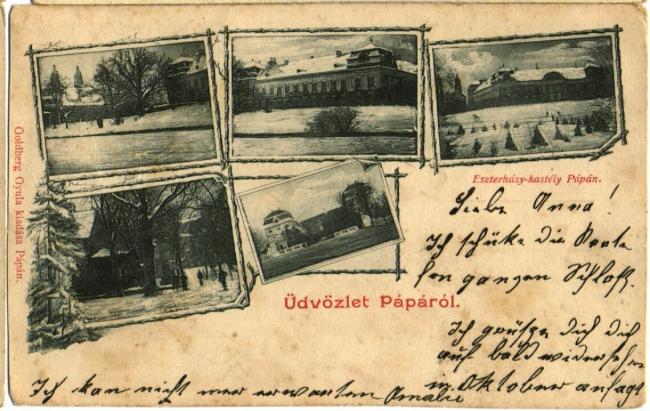 Goldberg Gyula kiadása Pápán.
Eszterházy-kastély Pápán.
Üdvözlet Pápáról.
Liebe Anna!
Ich schüke die Karte
fon ganzen Schloß.
Ich grüße dich dich
auf bald widersehen
Oktober anfagt
Ich kan nicht mer erwarten Amalie